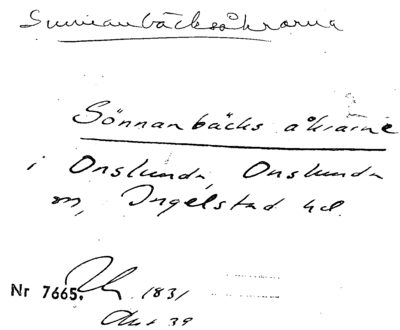 Sunnanbäcksåkrarna
Sönnanbäcks åkrarne
i Onslunda, Onslunda
sn, Ingelstad hd.
Nr 7665. 1831
Akt 39